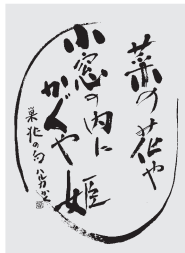 菜の花や
小窓の内に
かぐや姫
巣兆の句